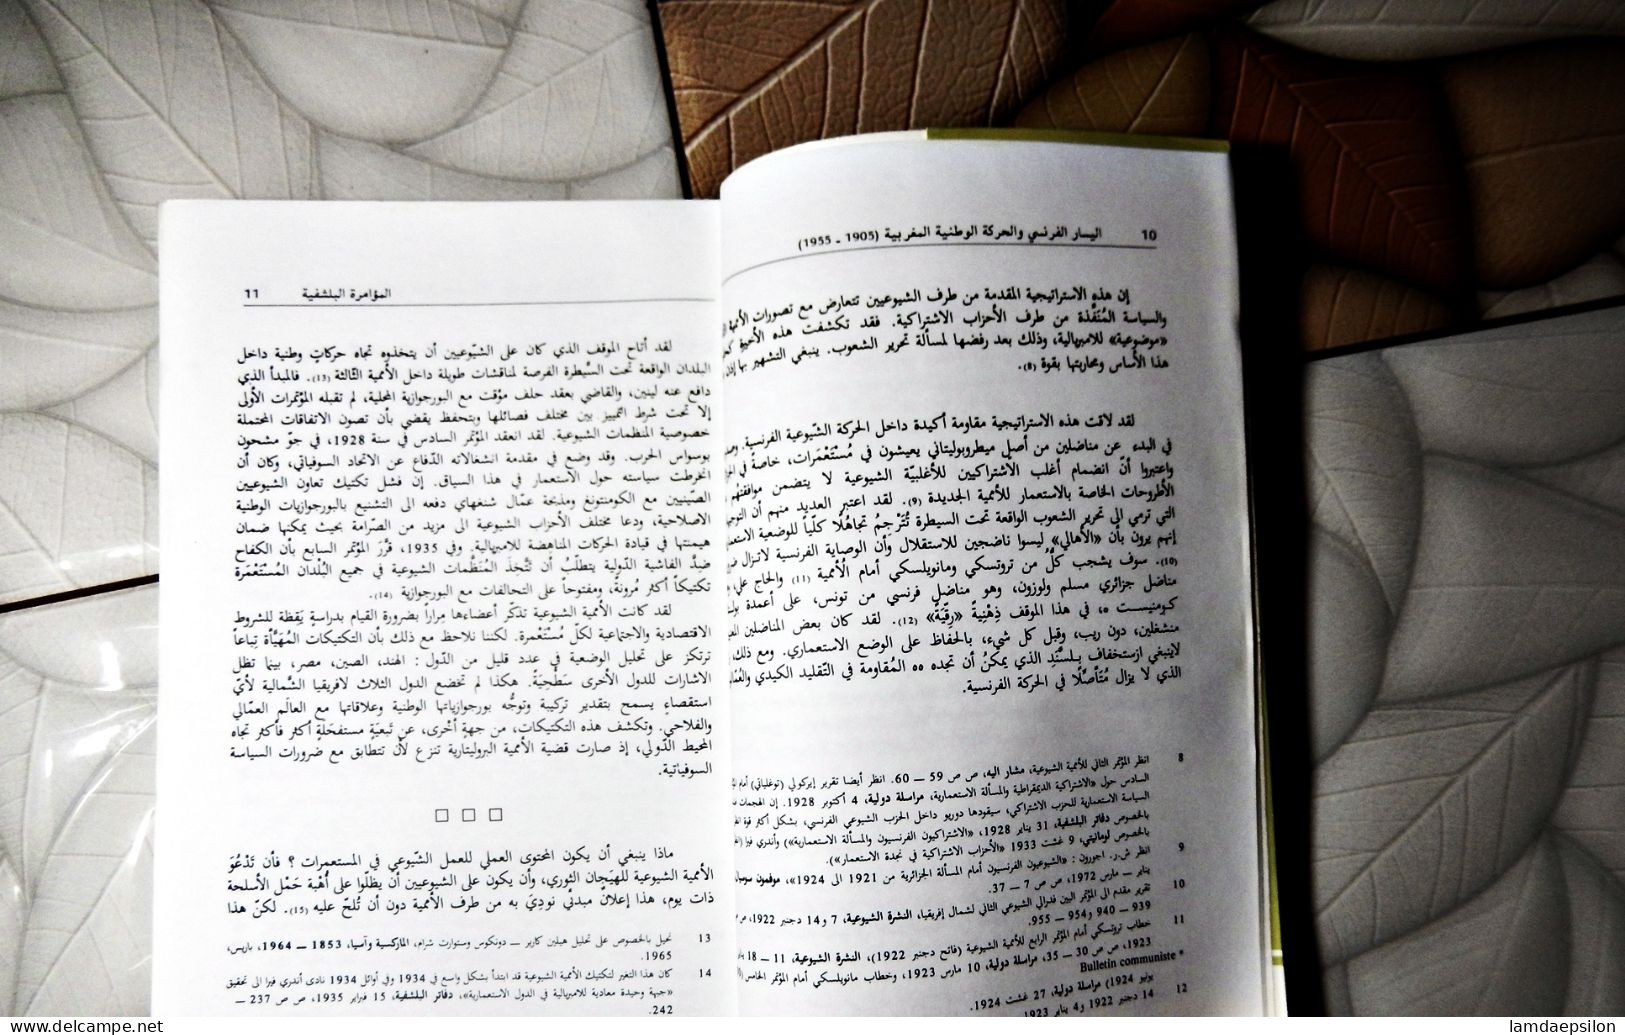 10 اليسار الفرنسي والحركة الوطنية المغربية (1905 ـ 1955)
إن هذه الاستراتيجية المقدمة من طرف الشيوعيين تتعارض مع تصورات الأممية
والسياسة المُنَفَّذة من طرف الأحزاب الاشتراكية. فقد تكشفت هذه الأخيرة
«موضوعية» للامبريالية، وذلك بعد رفضها لمسألة تحرير الشعوب. ينبغي التشهير بها
هذا الأساس ومحاربتها بقوة (8).
لقد لاقت هذه الاستراتيجية مقاومة أكيدة داخل الحركة الشّيوعية الفرنسية
في البدء عن مناضلين من أصل ميطروبوليتاني يعيشون في مُسْتَعْمَرات، خاصة في
واعتبروا أنّ انضمام أغلب الاشتراكيين للأغلبيّة الشيوعية لا يتضمن موافقتهم
الأطروحات الخاصة بالاستعمار للأممية الجديدة (9). لقد اعتبر العديد منهم أن
التي ترمي الى تحرير الشعوب الواقعة تحت السيطرة تُتَرْجِمُ تجاهُلًا كلّياً للوضعية
إنهم يرون بأن «الأهالي» ليسوا ناضجين للاستقلال وأن الوصاية الفرنسية لاتزال
(10). سوف يشجب كلٌّ من تروتسكي ومانويلسكي أمام الأممية (11) والحاج علي
مناضل جزائري مسلم ولوزون، وهو مناضل فرنسي من تونس، على أعمدة
كومنيست ٥، في هذا الموقف ذِهْنِيةً «رِقِّيَةً» (12). لقد كان بعض المناضلين
منشغلين، دون ريب، وقبل كل شيء، بالحفاظ على الوضع الاستعماري. ومع ذلك
لاينبغي ازستخفاف بِلسَّنَدِ الذي يمكنُ أن تجده ٥٥ المُقاومة في التّقليد الكيدي
الذي لا يزال مُتَأَصِّلًا في الحركة الفرنسية.
8 انظر المؤتمر الثاني للأممية الشيوعية، مشار اليه، ص ص 59 — 60. انظر أيضا تقرير إيركولي (توغلياتي) أمام
السادس حول «الاشتراكية الديمقراطية والمسألة الاستعمارية، مراسلة دولية، 4 أكتوبر 1928. إن
السياسة الاستعمارية للحزب الاشتراكي، سيقودها دوريو داخل الحزب الشيوعي الفرنسي، بشكل أكثر قوة
بالخصوص دفاتر البلشفية، 31 يناير 1928، «الاشتراكيون الفرنسيون والمسألة الاستعمارية») وأندري فيرا
بالخصوص لومانيتي، 9 غشت 1933 «الأحزاب الاشتراكية في نجدة الاستعمار»).
9 انظر ش.ر. اجورون : «الشيوعيون الفرنسيون أمام المسألة الجزائرية من 1921 الى 1924»،
يناير — مارس 1972، ص ص 7 — 37.
10 تقرير مقدم الى المؤتمر البين فدرالي الشيوعي الثاني لشمال إفريقيا، النشرة الشيوعية، 7 و14 دجنبر 1922،
939 — 940 و954 — 955.
11 خطاب تروتسكي أمام المؤتمر الرابع للأممية الشيوعية (فاتح دجنبر 1922)، النشرة الشيوعية، 11 — 18
1923، ص ص 30 — 35، مراسلة دولية، 10 مارس 1923، وخطاب مانويلسكي أمام المؤتمر الخامس
* Bulletin communiste
يونيو 1924) مراسلة دولية، 27 غشت 1924.
12 14 دجنبر 1922 و4 يناير 1923
المؤامرة البلشفية 11
لقد أتاح الموقف الذي كان على الشيّوعيين أن يتخذوه تجاه حركاتٍ وطنية داخل
البلدان الواقعة تحت السَّيطرة الفرصة لمناقشات طويلة داخل الأممية الثّالثة (13). فالمبدأ الذي
دافع عنه لينين، والقاضي بعقد حلف مؤقت مع البورجوازية المحلية، لم تقبله المؤتمرات الأولى
إلا تحت شرط التمييز بين مختلف فصائلها وبتحفظ يقضي بأن تصون الاتفاقات المحتملة
خصوصية المنظمات الشيوعية. لقد انعقد المؤتمر السادس في سنة 1928، في جوّ مشحون
بوسواس الحرب. وقد وضع في مقدمة انشغالاته الدّفاع عن الاتحاد السوفياتي، وكان أن
انخرطت سياسته حول الاستعمار في هذا السياق. إن فشل تكتيك تعاون الشيوعيين
الصّينيين مع الكومنتونغ ومذبحة عمّال شنغهاي دفعه الى التشنيع بالبورجوازيات الوطنية
الاصلاحية، ودعا مختلف الأحزاب الشيوعية الى مزيد من الصّرامة بحيث يمكنها ضمان
هيمنتها في قيادة الحركات المناهضة للامبريالية. وفي 1935، قرَّرَ المؤتمر السابع بأن الكفاح
ضِدَّ الفاشية الدّولية يتطلّبُ أن تتَّخذَ المُنَظَّمات الشيوعية في جميع البُلدان المُسْتَعْمَرة
تكتيكاً أكثر مُرونةً، ومفتوحاً على التحالفات مع البورجوازية (14).
لقد كانت الأممية الشيوعية تذكّر أعضاءها مِراراً بضرورة القيام بدراسةٍ يَقظة للشروط
الاقتصادية والاجتماعية لكلّ مُسْتَعْمرة. لكننا نلاحظ مع ذلك بأن التكتيكات المُهَيَّأة تِباعاً
ترتكز على تحليل الوضعية في عدد قليل من الدّول : الهند، الصين، مصر، بينما تظل
الاشارات للدول الأخرى سَطْحِيَةً. هكذا لم تخضع الدول الثلاث لافريقيا الشّمالية لأيِّ
استقصاءٍ يسمح بتقدير تركيبة وتوجُّه بورجوازياتها الوطنية وعلاقاتها مع العالَم العمّالي
والفلاحي. وتكشف هذه التكتيكات، من جهةٍ أخْرى، عن تَبعيَةٍ مستفحَلةٍ أكثر فأكثر تجاه
المحيط الدّولي، إذ صارت قضية الأممية البروليتارية تنزع لأن تتطابق مع ضرورات السياسة
السوفياتية.
□ □ □
ماذا ينبغي أن يكون المحتوى العملي للعمل الشّيوعي في المستعمرات ؟ فأن تَدْعُوَ
الأممية الشيوعية للهيَجان الثوري، وأن يكون على الشيوعيين أن يظلّوا على أُهْبة حَمْل الأسلحة
ذات يوم، هذا إعلانٌ مبدئي نوديَ به من طرف الأممية دون أن تُلحّ عليه (15). لكنّ هذا
13 نحيل بالخصوص على تحليل هيلين كارير — دونكوس وستوارت شرام، الماركسية وآسيا، 1853 — 1964، باريس،
1965.
14 كان هذا التغير لتكتيك الأممية الشيوعية قد ابتدأ بشكل واسع في 1934 وفي أوائل 1934 نادى أندري فيرا الى تحقيق
«جبهة وحيدة معادية للامبريالية في الدول الاستعمارية»، دفاتر البلشفية، 15 فبراير 1935، ص ص 237 —
242.
lamdaepsilon
www.delcampe.net